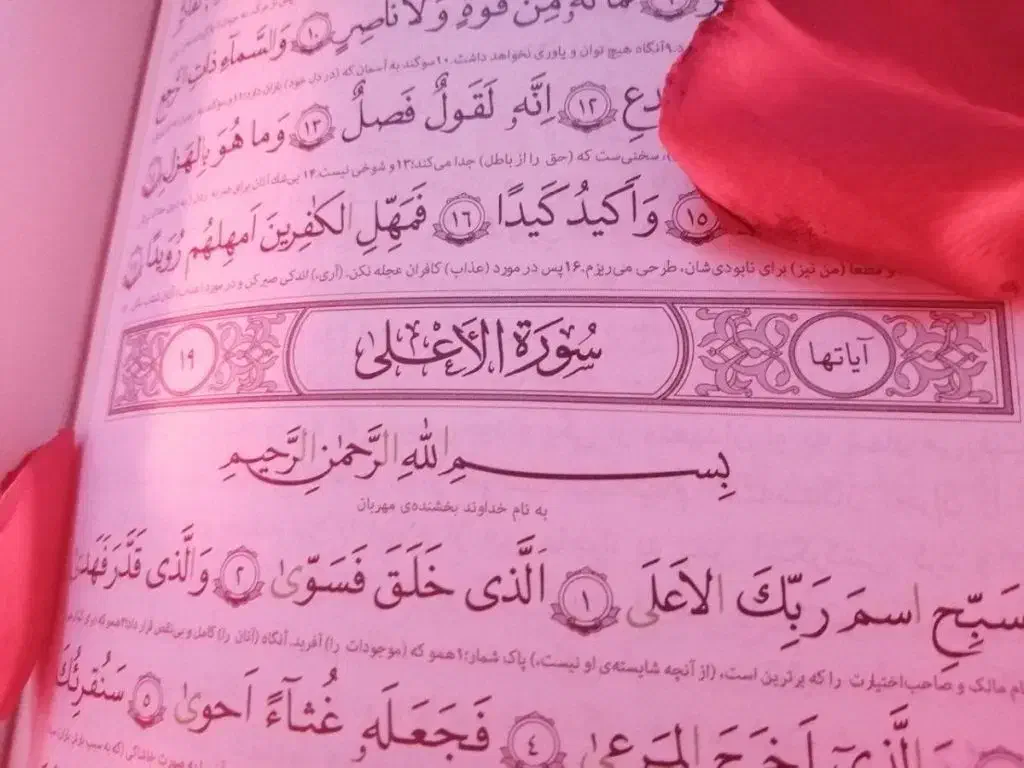 مالَهُ مِن قُوَّةٍ وَلا ناصِرٍ ١٠ وَالسَّمآءِ ذاتِ الرَّجعِ
آنگاه هیچ توان و یاوری نخواهد داشت.۱۰ سوگند به آسمان که (در دل خود) باران دارد؛۱۱
١٢ اِنَّهُ لَقَولٌ فَصلٌ ١٣ وَما هُوَ بِالهَزلِ
سخنی‌ست که (حق را از باطل) جدا می‌کند؛۱۳ و شوخی نیست.۱۴ بی‌شک آنان برای
١٥ وَاَكيدُ كَيدًا ١٦ فَمَهِّلِ الكٰفِرينَ اَمهِلهُم رُوَيدًا
و قطعاً (من نیز) برای نابودی‌شان، طرحی می‌ریزم.۱۶ پس در مورد (عذاب) کافران عجله نکن. (آری،) اندکی صبر کن و در مورد
آیاتها سُورَةُ الأَعْلىٰ ١٩
بِسمِ اللّٰهِ الرَّحمٰنِ الرَّحيمِ
به نام خداوند بخشنده‌ی مهربان
سَبِّحِ اسمَ رَبِّكَ الاَعلَى ١ اَلَّذى خَلَقَ فَسَوّىٰ ٢ وَالَّذى قَدَّرَ فَهَدىٰ
نام مالک و صاحب‌اختیارت را که برترین است، (از آنچه شایسته‌ی او نیست،) پاک شمار؛۱ همو که (موجودات را) آفرید. آنگاه (آنان را) کامل و بی‌نقص قرار داد؛۲ همو که
وَالَّذىٓ اَخرَجَ المَرعىٰ ٤ فَجَعَلَهُ غُثآءً اَحوىٰ ٥ سَنُقرِئُكَ